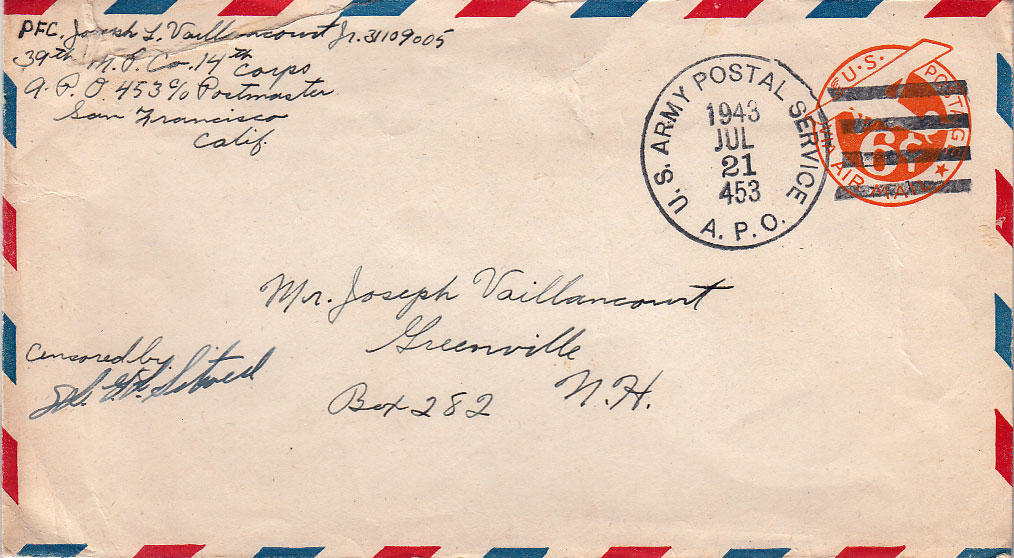 PFC. Joseph L. Vaillancourt Jr. 31109005
39th M.P. Co. 14th Corps
A.P.O. 453 c/o Postmaster
San Francisco
Calif.
U.S. ARMY POSTAL SERVICE
1943
JUL
21
453
A.P.O.
U.S. POSTAGE
6¢
VIA AIR MAIL
Mr. Joseph Vaillancourt
Greenville
N.H.
Box 282
Censored by